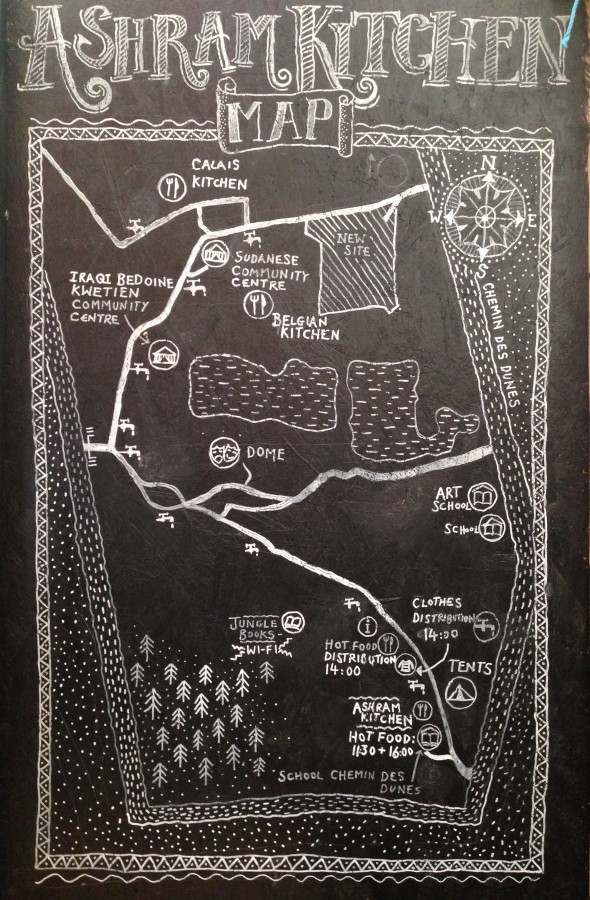 ASHRAM KITCHEN
MAP
CALAIS
KITCHEN
N
W
E
S
NEW
SITE
SUDANESE
COMMUNITY
CENTRE
IRAQI BEDOINE
KWETIEN
COMMUNITY
CENTRE
BELGIAN
KITCHEN
CHEMIN DES DUNES
DOME
ART
SCHOOL
SCHOOL
CLOTHES
DISTRIBUTION
14:00
JUNGLE
BOOKS
WI-FI
i
HOT FOOD
DISTRIBUTION
14:00
TENTS
ASHRAM
KITCHEN
HOT FOOD:
1130 + 16:00
SCHOOL CHEMIN DES
DUNES